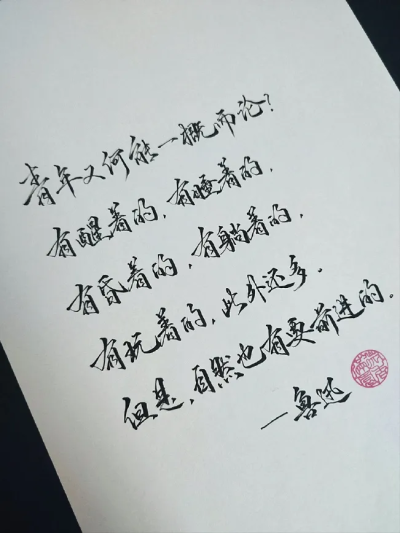 青年又何能一概而论?
有醒着的,有睡着的,
有昏着的,有躺着的,
有玩着的,此外还多.
但是,自然也有要前进的.
—鲁迅